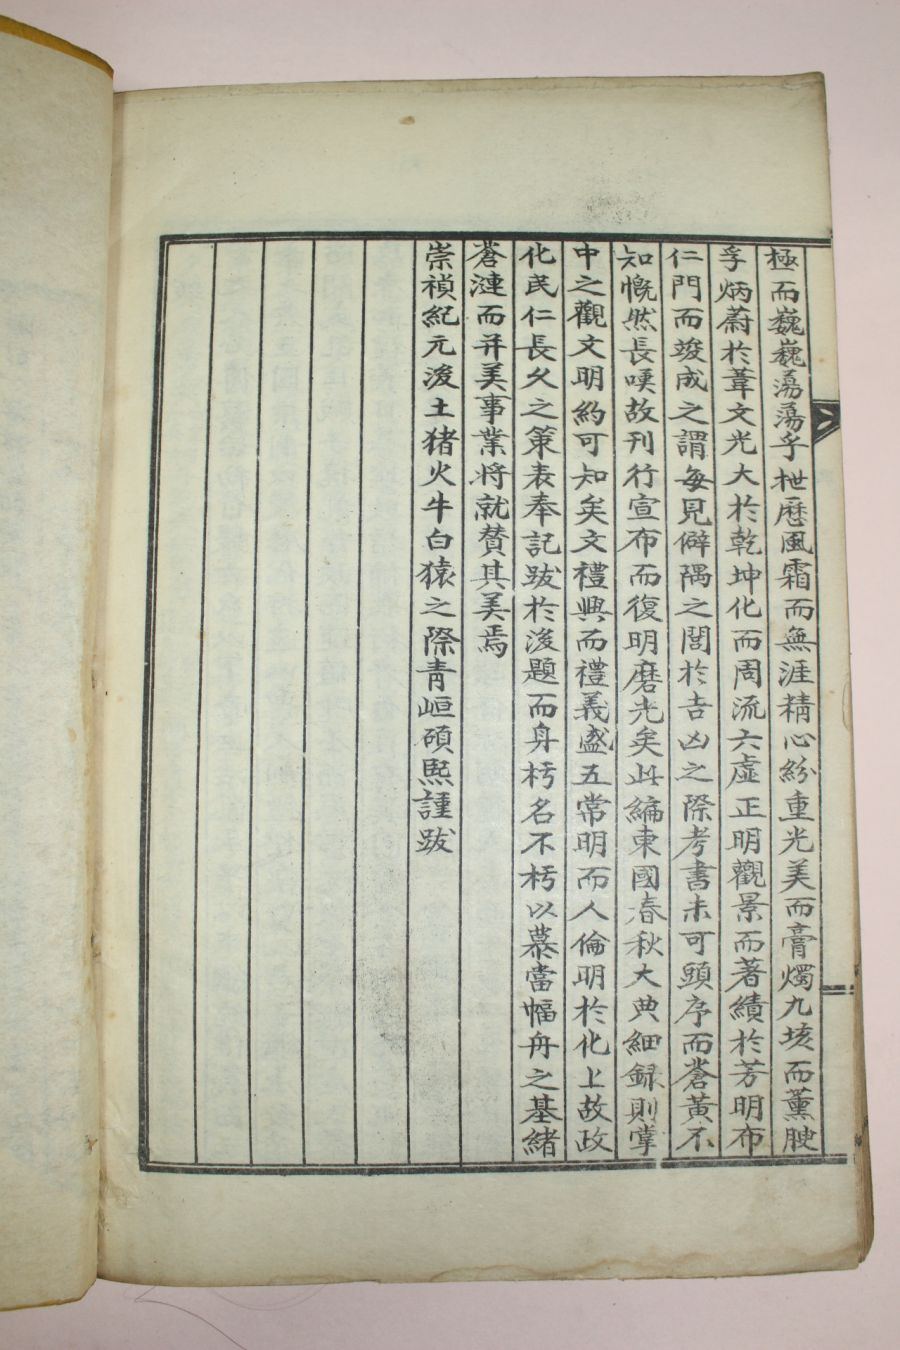 極而巍巍蕩蕩乎枻歷風霜而無涯精心紛重光美而膏燭九垓而薰腴
孚炳蔚於葦文光大於乾坤化而周流六虛正明觀景而著績於芳明布
仁門而竣成之謂每見僻隅之閭於吉凶之際考書未可頭序而蒼黃不
知慨然長嘆故刊行宣布而復明磨光矣此編東國春秋大典細録則掌
中之觀文明約可知矣文禮興而禮義盛五常明而人倫明於化上故政
化民仁長久之策表奉記跋於浚題而身朽名不朽以慕當幅舟之基緒
蒼漣而并美事業将就贊其美焉
崇禎紀元浚土猪火牛白猿之際青峘碩熙謹跋